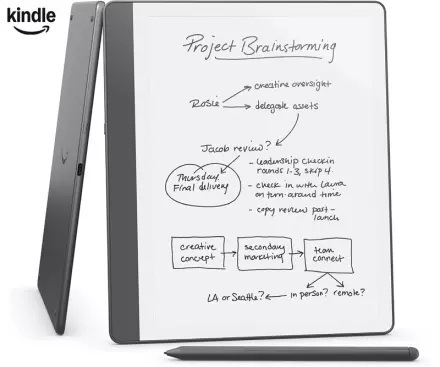 kindle
Project Brainstorming
creative oversight
Rosie
delegate assets
Jacob review?
- leadership checkin
rounds 1-3, skip 4.
Thursday
Final delivery
- check in with Laura
on turn-around time
- copy review post-
launch
creative
concept
secondary
marketing
team
connect
LA or Seattle?
in person?
remote?